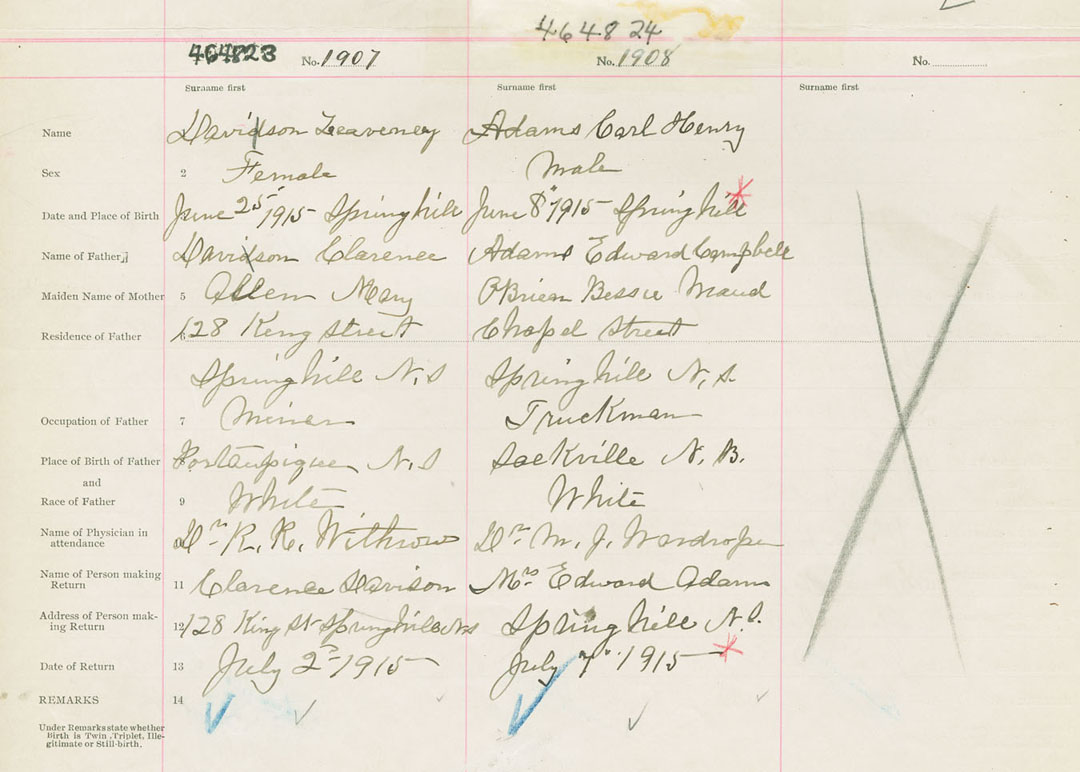 464823 464824
No. 1907 No. 1908 No.
Surname first Surname first Surname first
Name Davidson Adams Carl Henry
Sex 2 Female Male
Date and Place of Birth June 25 1915 Springhill June 8" 1915 Springhill
Name of Father Davidson Clarence Adams Edward Campbell
Maiden Name of Mother 5 Allen Mary O'Brien Bessie Maud
Residence of Father 6 128 King Street Chapel Street
Springhill N.S Springhill N.S.
Occupation of Father 7 Miner Truckman
Place of Birth of Father Portaupique N.S Sackville N.B.
and
Race of Father 9 White White
Name of Physician in
attendance 10 Dr. R. R. Withrow Dr. M. J. Wardrope
Name of Person making
Return 11 Clarence Davison Mrs Edward Adams
Address of Person mak-
ing Return 12 128 King St Springhill N.S Springhill N.S.
Date of Return 13 July 2nd 1915 July 7" 1915
REMARKS 14
Under Remarks state whether
Birth is Twin, Triplet, Ille-
gitimate or Still-birth.